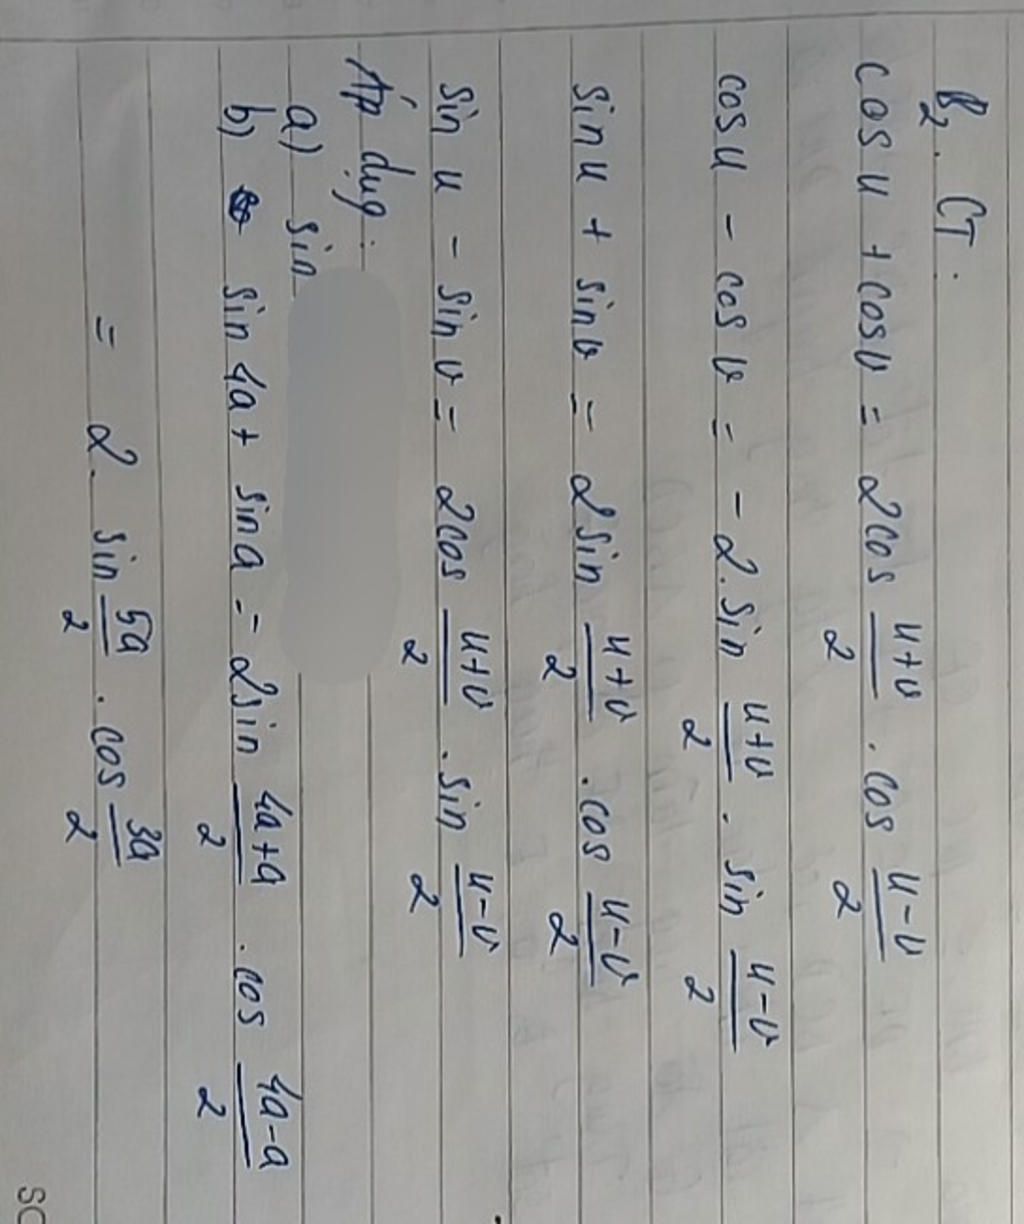 B2. CT:
cos u + cos v = 2cos (u+v)/2 . cos (u-v)/2
cos u - cos v = -2. sin (u+v)/2 . sin (u-v)/2
sin u + sin v = 2 sin (u+v)/2 . cos (u-v)/2
sin u - sin v = 2cos (u+v)/2 . sin (u-v)/2
Áp dụg:
a) sin
b) sin 4a + sin a = 2sin (4a+a)/2 . cos (4a-a)/2
= 2. sin 5a/2 . cos 3a/2
SC